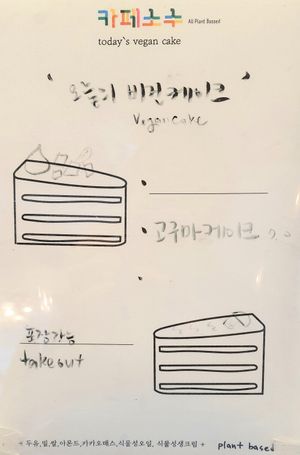 카페소수 All Plant Based!
today`s vegan cake
' 오늘의 비건케이크 '
Vegan cake
• 고구마케이크
포장가능
takeout
* 두유,밀,쌀,아몬드,카카오매스,식물성오일, 식물성생크림 *
plant based